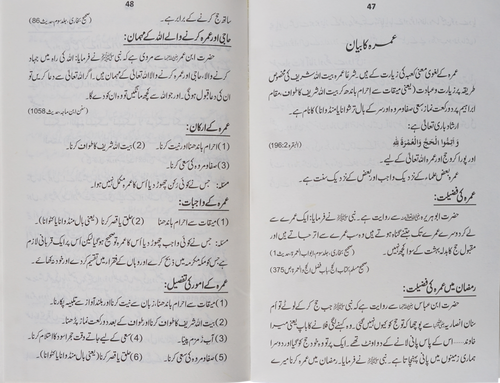 47
عمرہ کا بیان
عمرہ کے لغوی معنی کعبہ کی زیارت کے ہیں۔ شرعاً عمرہ بیت اللہ شریف کی مخصوص
طریقہ پر زیارت و عبادت (یعنی میقات سے احرام باندھ کر بیت اللہ شریف کا طواف، مقام
ابراہیم پر دو رکعت نماز، سعی صفا و مروہ اور سر کے بال ترشوانا یا منڈوانا) کا نام ہے۔
ارشاد باری تعالیٰ ہے:
وَاَتِمُّوا الْحَجَّ وَالْعُمْرَةَ لِلّٰهِ (البقرہ 196:2)
اور پورا کرو حج اور عمرہ اللہ تعالیٰ کے لیے۔
عمرہ بعض علماء کے نزدیک واجب اور بعض کے نزدیک سنت ہے۔
عمرہ کی فضیلت:
حضرت ابو ہریرہ سے روایت ہے۔ نبی ﷺ نے فرمایا: ایک عمرے سے
لے کر دوسرے عمرے تک جتنے گناہ ہوتے ہیں وہ سب عمرے سے اتر جاتے ہیں اور
مقبول حج کا بدلہ بہشت کے سوا کچھ نہیں۔
رمضان میں عمرہ کی فضیلت:
حضرت ابن عباس سے روایت ہے کہ نبی ﷺ جب حج کر کے لوٹے تو اُم
سنان انصاریہ سے پوچھا کہ تو حج کو کیوں نہیں گئی۔ وہ کہنے لگی فلانے کا باپ یعنی میرا
خاوند... اس کے پاس پانی لانے کے دو اونٹ تھے۔ ایک پر تو وہ خود حج کو گیا اور دوسرا
ہماری زمینوں میں پانی پہنچاتا ہے۔ نبی ﷺ نے فرمایا۔ رمضان میں عمرہ کرنا میرے
48
ساتھ حج کرنے کے برابر ہے۔ (صحیح بخاری، جلد سوم، حدیث 86)
حاجی اور عمرہ کرنے والے اللہ کے مہمان:
حضرت ابن عمر سے مروی ہے کہ نبی ﷺ نے فرمایا: اللہ کی راہ میں جہاد
کرنے والا، حاجی اور عمرہ کرنے والا اللہ تعالیٰ کے مہمان ہیں۔ اگر اللہ تعالیٰ سے دعا کریں تو
ان کی دعا قبول ہوگی۔ اور جو اللہ سے کچھ مانگیں تو وہ ان کو دے گا۔
(سنن ابن ماجہ، حدیث 1058)
عمرہ کے ارکان:
(1) احرام باندھنا اور نیت کرنا۔ (2) بیت اللہ شریف کا طواف کرنا۔
(3) صفا و مروہ کی سعی کرنا۔
مسئلہ: جس نے کوئی رکن چھوڑ دیا اُس کا عمرہ مکمل نہیں ہوا۔
عمرہ کے واجبات:
(1) میقات سے احرام باندھنا (2) حلق یا قصر کرنا۔ (یعنی بال منڈوانا یا کٹوانا)۔
مسئلہ: جس نے کوئی واجب چھوڑ دیا اُس کا عمرہ صحیح ہو گیا لیکن اُس پر ایک قربانی لازم
ہے جس کو مکہ مکرمہ میں ذبح کرے اور وہاں کے فقراء میں تقسیم کر دے اور خود نہ کھائے۔
عمرہ کے امور کی تفصیل:
(1) میقات سے احرام باندھنا، زبان سے نیت کرنا اور بلند آواز سے تلبیہ پکارنا۔
(2) بیت اللہ شریف کا طواف کرنا اور طواف کے بعد دو رکعت نماز پڑھنا۔
(3) آب زمزم پینا۔ (4) سعی کے لیے جاتے وقت حجر اسود کا استلام کرنا۔
(5) صفا و مروہ کی سعی کرنا۔ (6) حلق یا قصر کرنا۔ (یعنی بال منڈوانا یا کٹوانا)۔